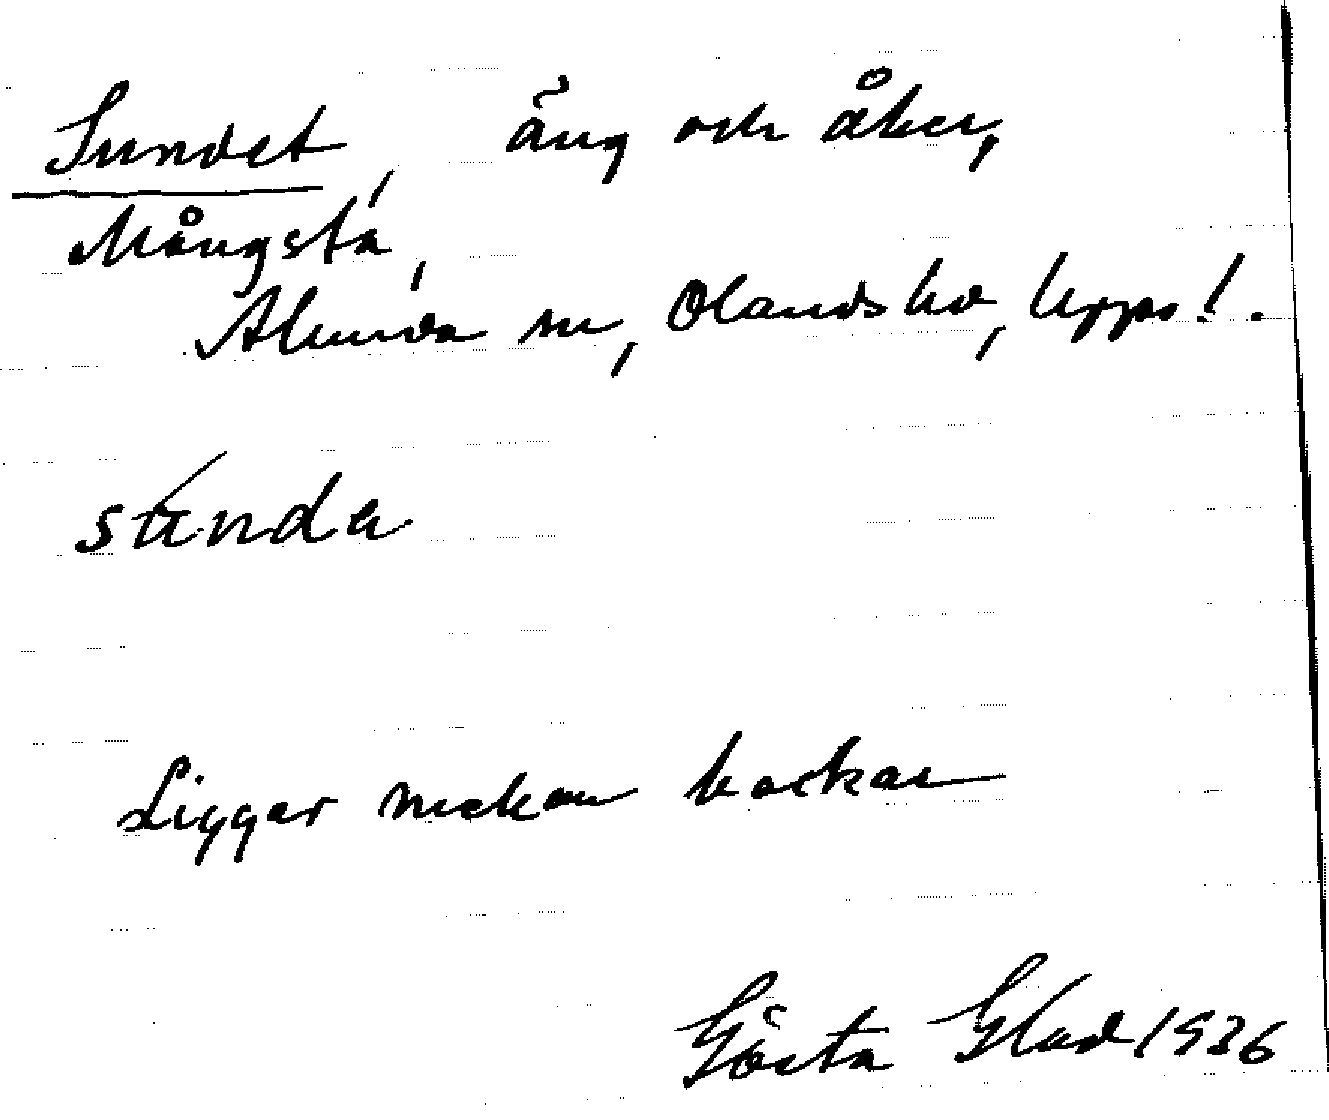 Sundet, äng och åker,
Mångsta,
Alunda sn, Olands hd, Upps l.
sunda
Ligger mellan backar
Gösta Glad 1936